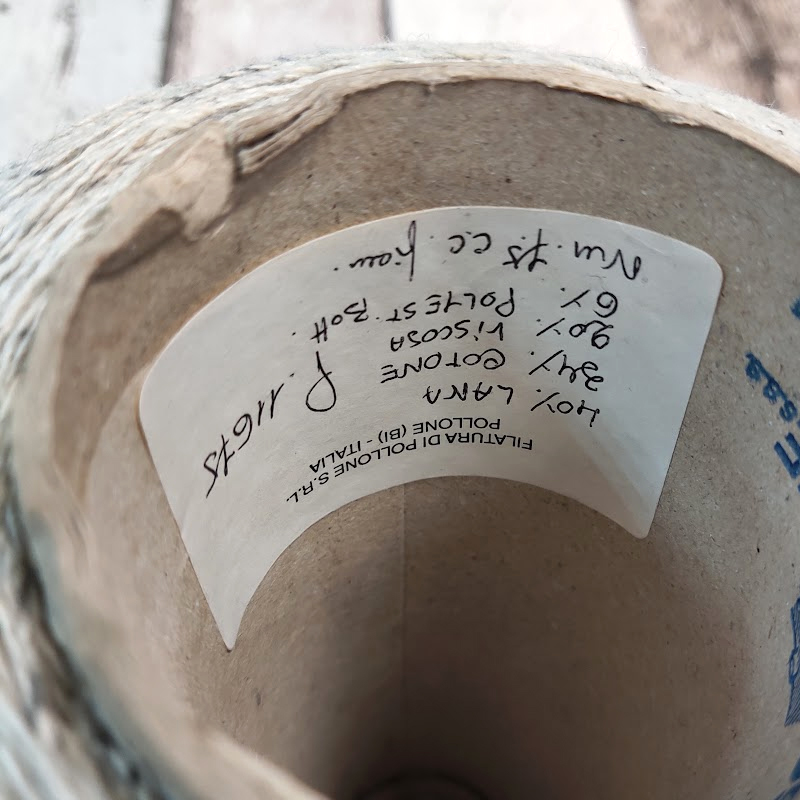 FILATURA DI POLLONE S.R.L.
POLLONE (BI) - ITALIA
40% LANA
34% COTONE P. 11675
20% VISCOSA
6% POLIEST. Bott.
Nm. 7,5 C.C.